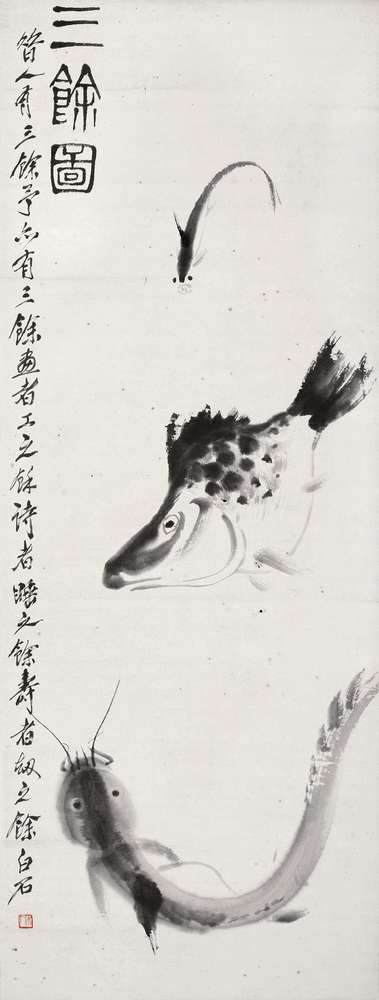 三餘圖
昔人有三餘予亦有三餘畫者工之餘詩者睡之餘壽者劫之餘白石